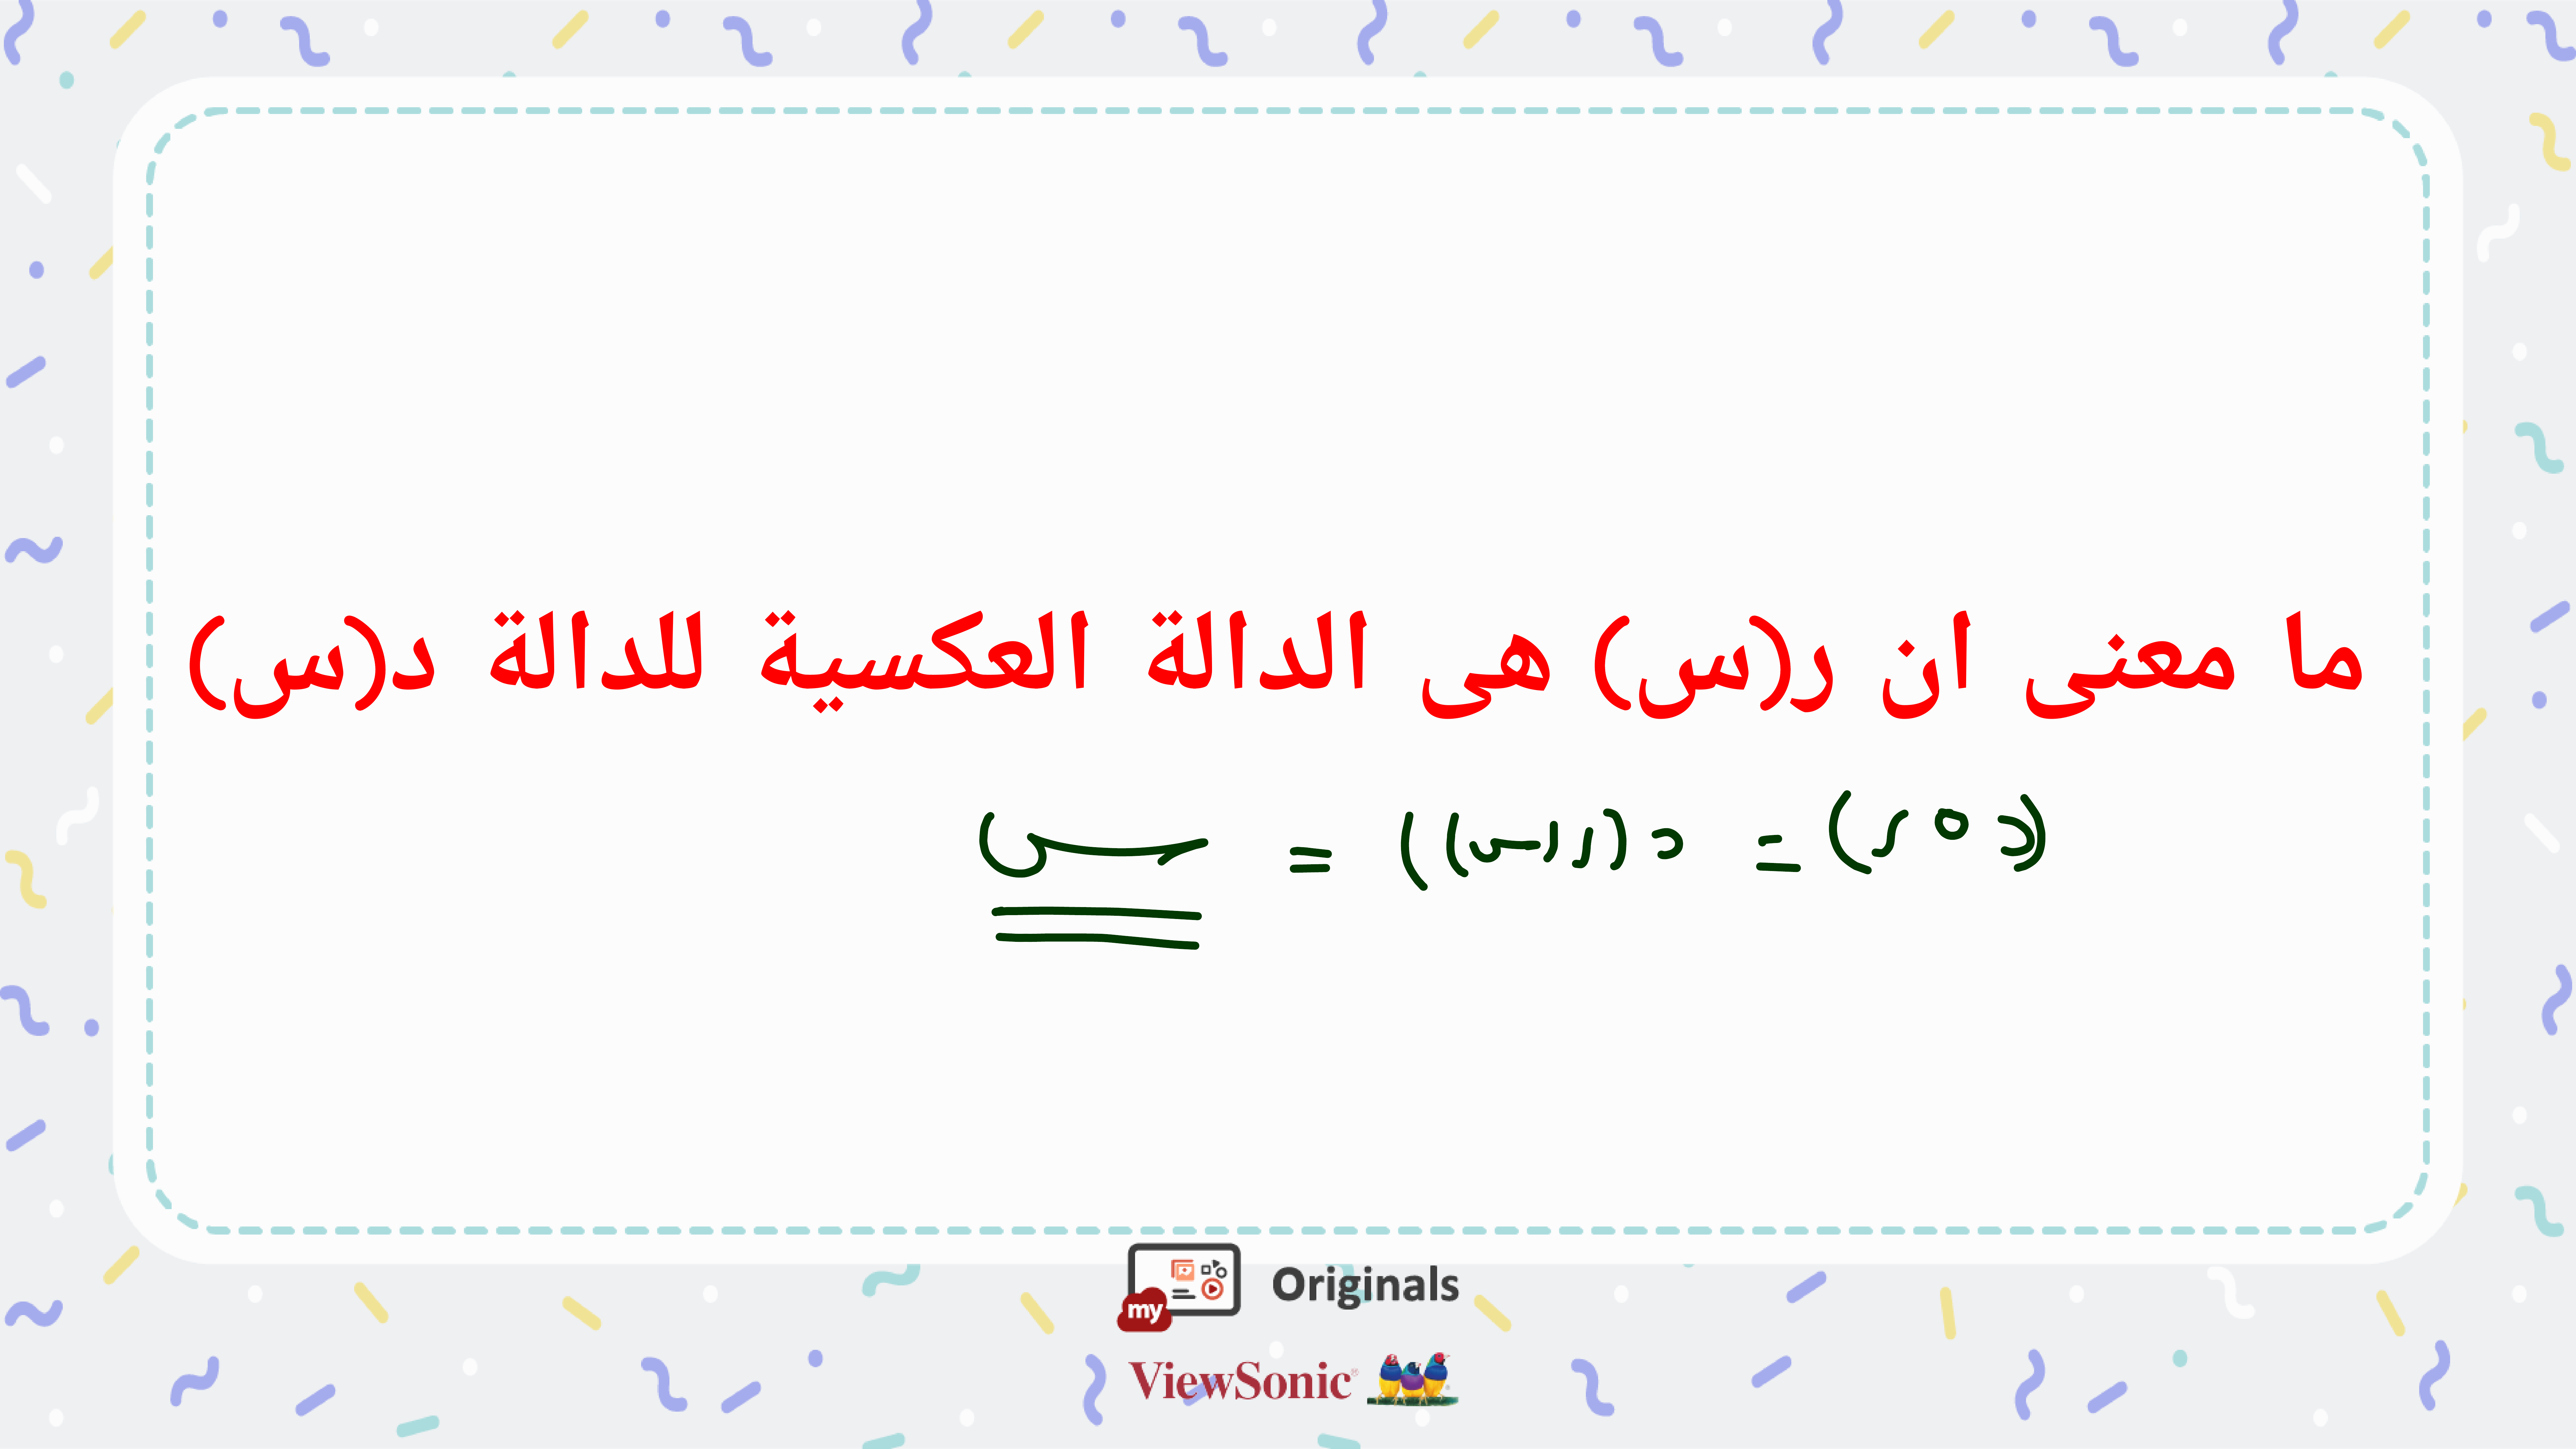 ما معنى ان ر(س) هى الدالة العكسية للدالة د(س)
(د ∘ ر) = د(ر(س)) = س
my Originals
ViewSonic®